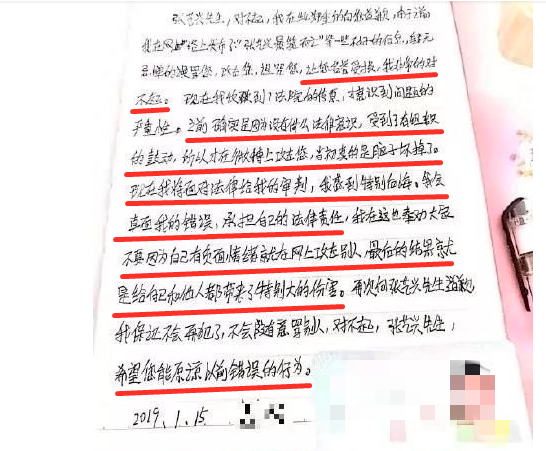 张艺兴先生，对不起，我在此郑重的向您道歉，由于之前
我在网上发布了"张艺兴""等一些不好的信息，
的谩骂您，攻击您，诅咒您，让您名誉受损，我非常的对
不起。现在我收到了法院的传票，才意识到问题的
严重性。之前确实是因为没有什么法律意识，受到了有组织
的鼓动，所以才在微博上攻击您，当初真的是脑子坏掉了。
现在我将面对法律给我的审判，我感到特别后悔。我会
直面我的错误，承担自己的法律责任，我在这里奉劝大家
不要因为自己有负面情绪就在网上攻击别人，最后的结果就
是给自己和他人都带来了特别大的伤害。再次向张艺兴先生道歉，
我保证不会再犯了，不会随意骂别人，对不起，张艺兴先生，
希望您能原谅以前错误的行为。
2019.1.15